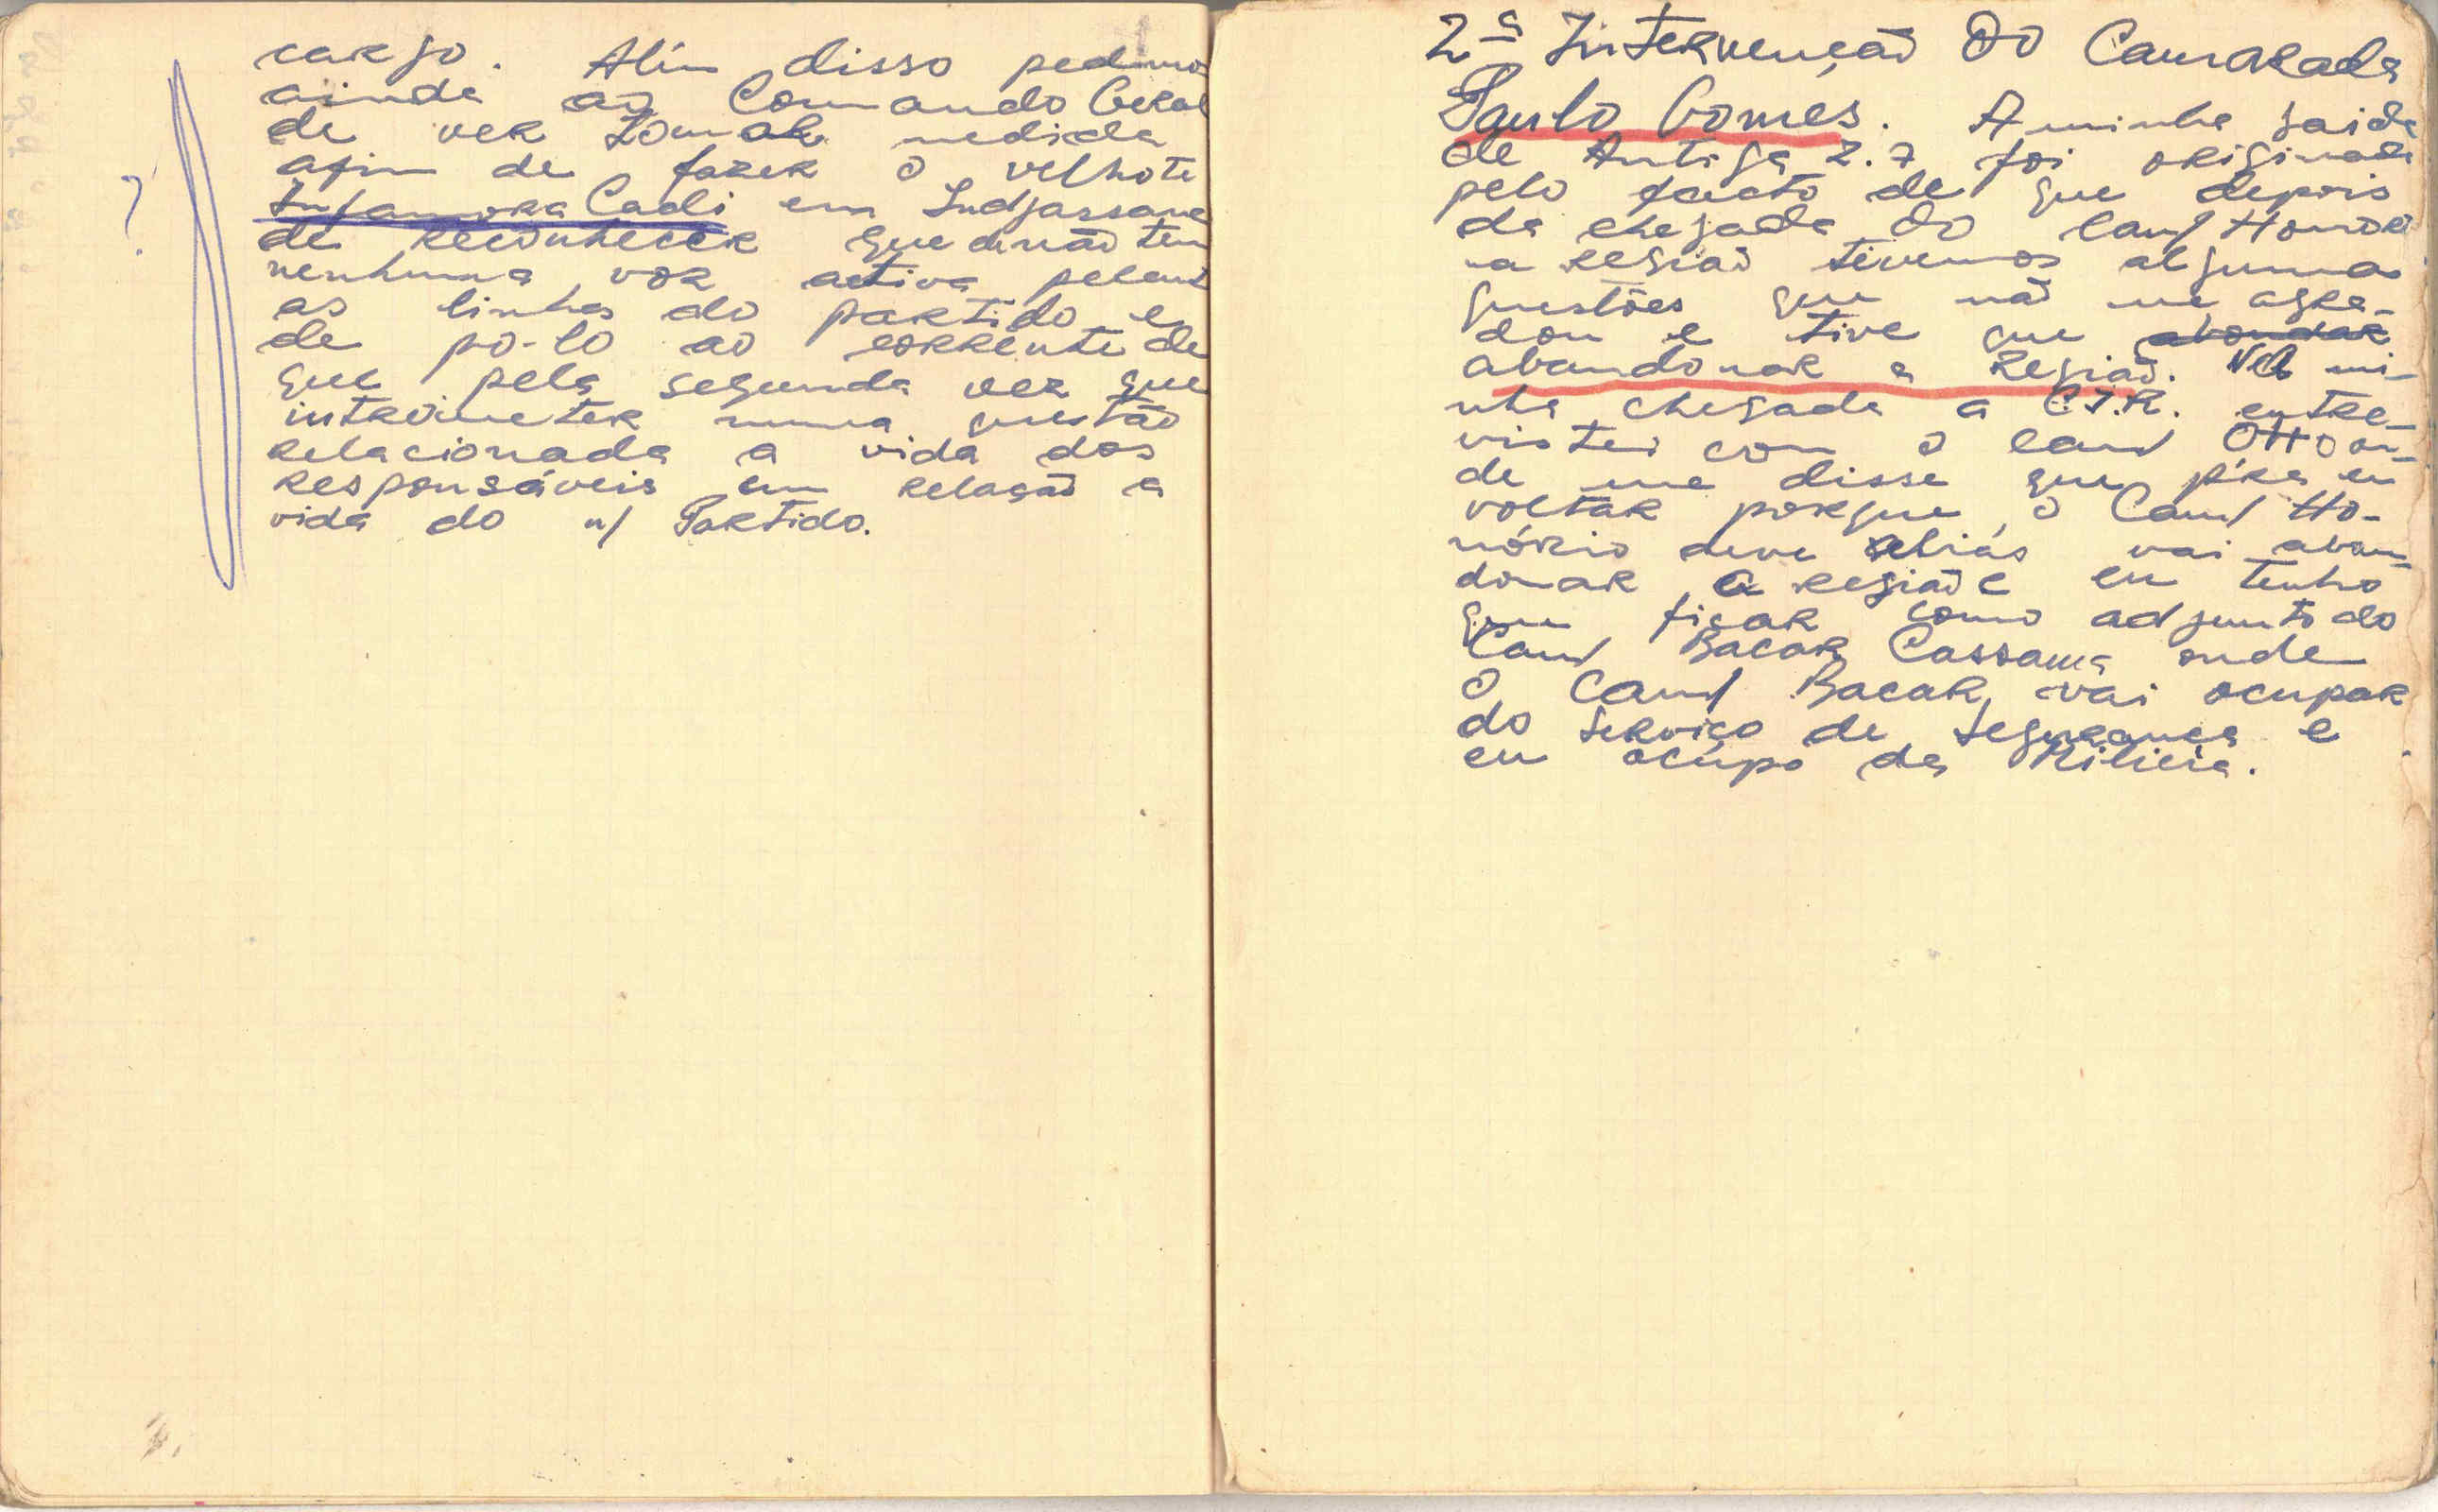 cargo. Além disso pedimos
ainda ao Comando Geral
de ver tomar medida
afim de fazer o velhote
Infamora Cadi em Indjassane
de reconhecer que não tem
nenhuma voz activa perante
as linhas do partido e
de po-lo ao corrente de
que pela segunda vez que
introimeter numa questão
relacionada a vida dos
responsáveis em relação a
vida do n/ Partido.
?
2ª Intervenção do Camarada
Paulo Gomes. A minha saida
de Antiga Z.7 foi originada
pelo facto de que depois
da chegada do Cam/ Honório
na região tivemos algumas
questões que não me agra-
dou e tive que abondar
abandonar a Região. Na mi-
nha chegada a C.I.R. entre-
vistei com o Cam/ Otto on-
de me disse que p'ra eu
voltar porque o Cam/ Ho-
nório deve aliás vai aban-
donar a região e eu tenho
que ficar como adjunto do
Cam/ Bacar Cassamá onde
o Cam/ Bacar vai ocupar
do Serviço de Segurança e
eu ocupo da Milícia.